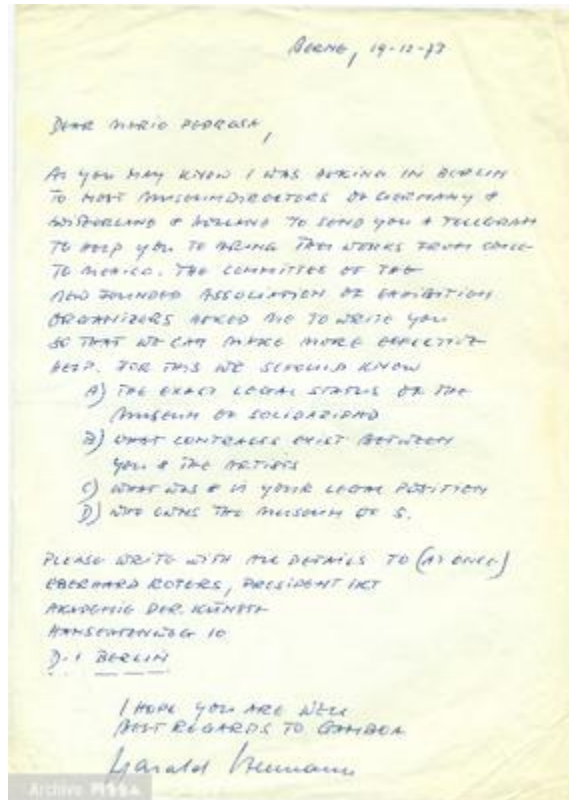 BERNE, 19-12-73
DEAR MARIO PEDROSA,
AS YOU MAY KNOW I WAS ASKING IN BERLIN
TO MOST MUSEUMDIRECTORS OF GERMANY &
SWITZERLAND & HOLLAND TO SEND YOU A TELEGRAM
TO HELP YOU TO BRING THE WORKS FROM CHILE
TO MEXICO. THE COMMITTEE OF THE
NEW FOUNDED ASSOCIATION OF EXHIBITION
ORGANIZERS ASKED ME TO WRITE YOU
SO THAT WE CAN MAKE MORE EFFECTIVE
HELP. FOR THIS WE SHOULD KNOW
A) THE EXACT LEGAL STATUS OF THE
MUSEUM OF SOLIDARIDAD
B) WHAT CONTRACTS EXIST BETWEEN
YOU & THE ARTISTS
C) WHAT WAS & IS YOUR LEGAL POSITION
D) WHO OWNS THE MUSEUM OF S.
PLEASE WRITE WITH ALL DETAILS TO (AT ONCE)
EBERHARD ROTERS, PRESIDENT IKT
AKADEMIE DER KÜNSTE
HANSEATENWEG 10
D-1 BERLIN
I HOPE YOU ARE WELL
BEST REGARDS TO GAMBOA
Harald Szeemann
Archivo MSSA